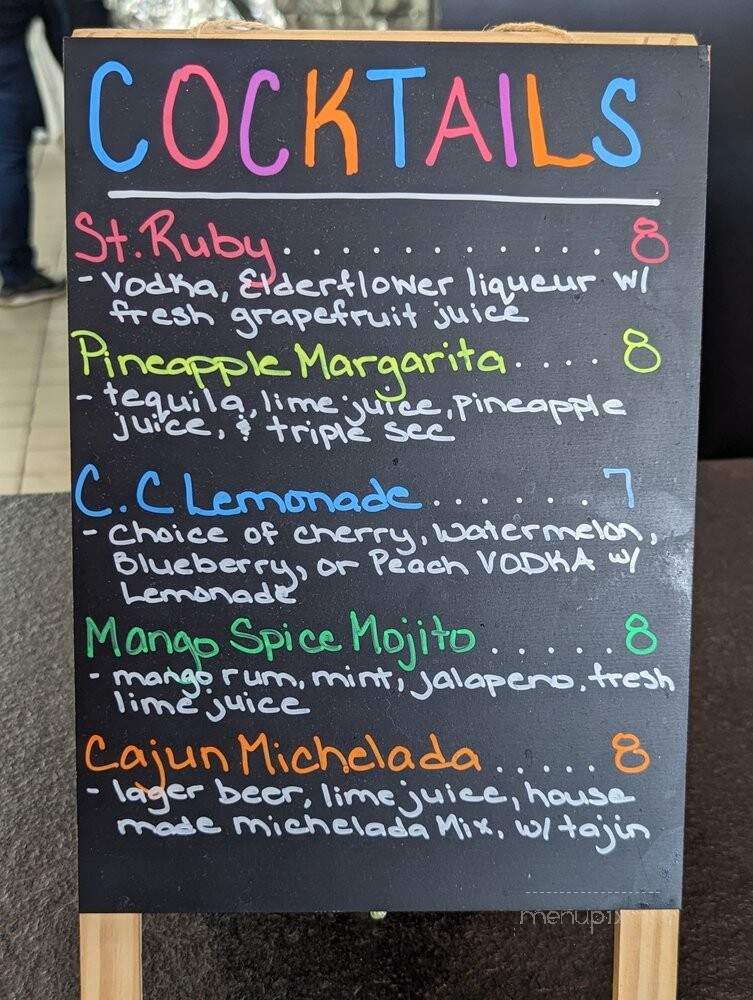 COCKTAILS
St. Ruby............. 8
- Vodka, Elderflower liqueur w/
fresh grapefruit juice
Pineapple Margarita.... 8
- tequila, lime juice, pineapple
juice, & triple sec
C.C Lemonade....... 7
- Choice of cherry, watermelon,
Blueberry, or Peach VODKA w/
Lemonade
Mango Spice Mojito..... 8
- mango rum, mint, jalapeno, fresh
lime juice
Cajun Michelada..... 8
- lager beer, lime juice, house
made michelada Mix, w/ tajin
menupix